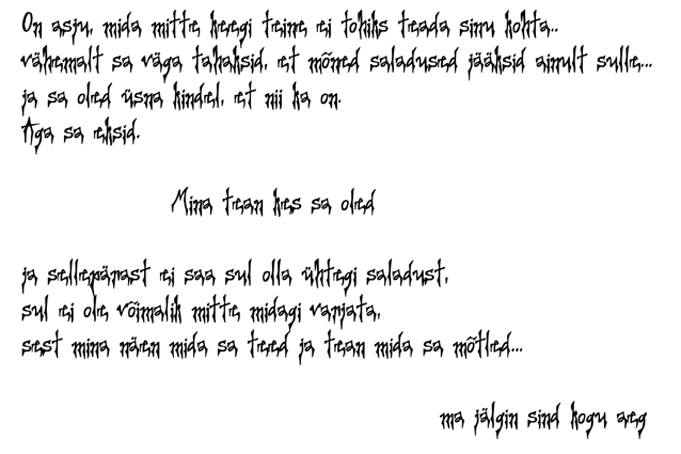 On asju, mida mitte keegi teine ei tohiks teada sinu kohta..
vähemalt sa väga tahaksid, et mõned saladused jääksid ainult sulle...
ja sa oled üsna kindel, et nii ka on.
Aga sa eksid.
Mina tean kes sa oled
ja sellepärast ei saa sul olla ühtegi saladust,
sul ei ole võimalik mitte midagi varjata,
sest mina näen mida sa teed ja tean mida sa mõtled...
ma jälgin sind kogu aeg